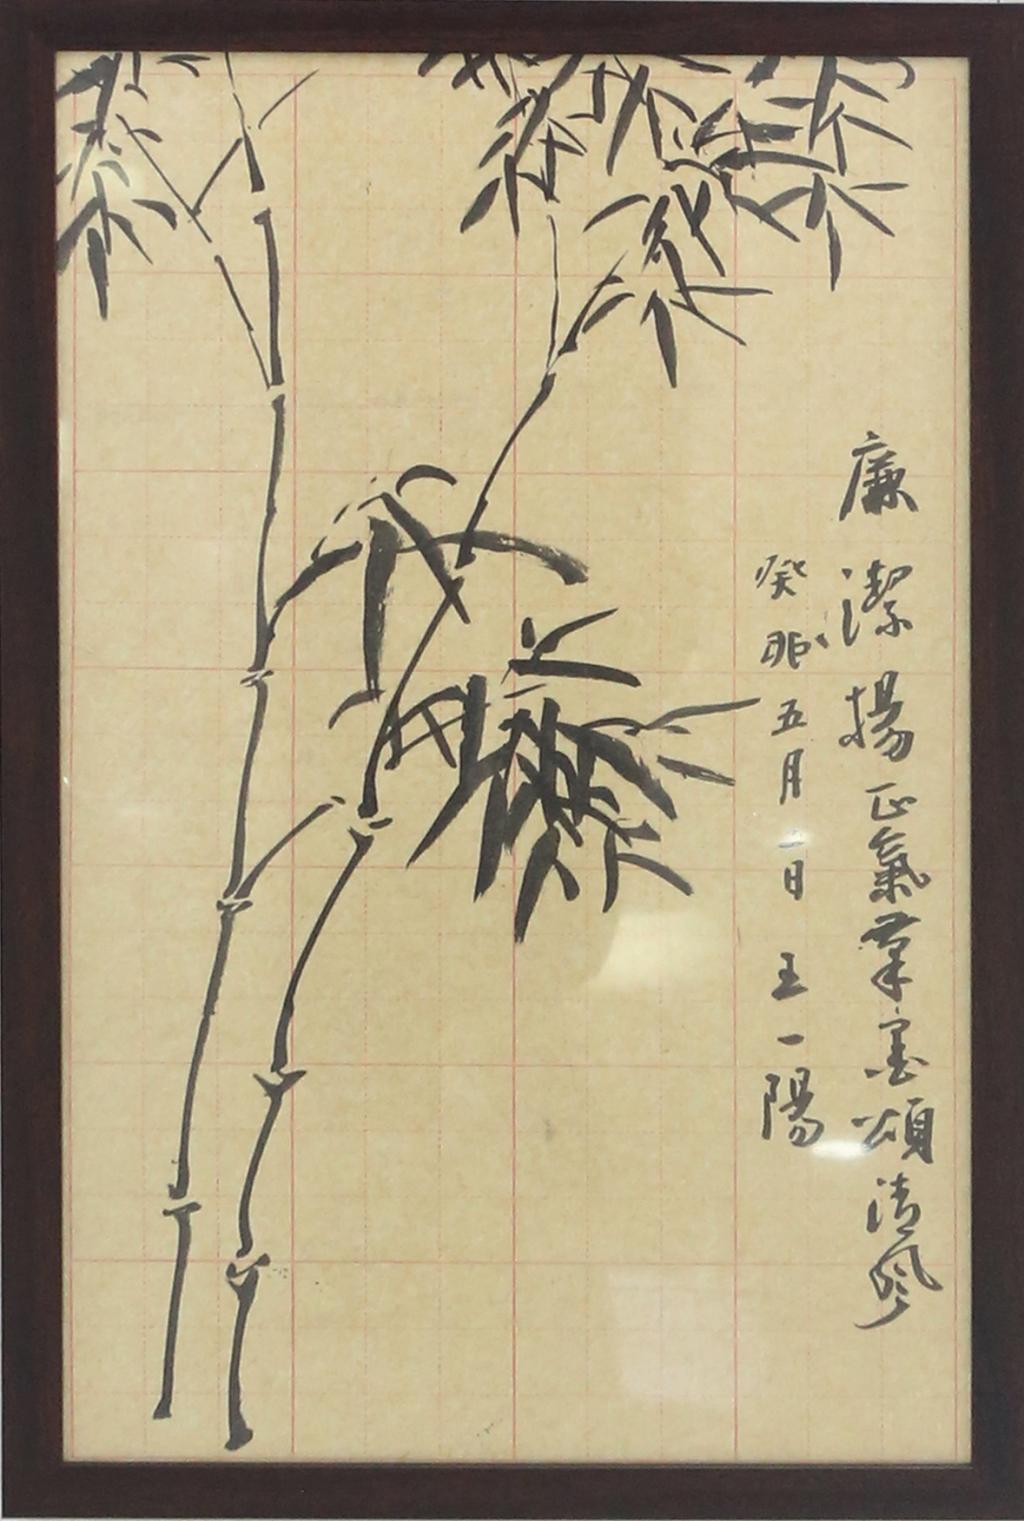 廉潔揚正氣翰墨頌清風
癸卯五月一日 王一陽